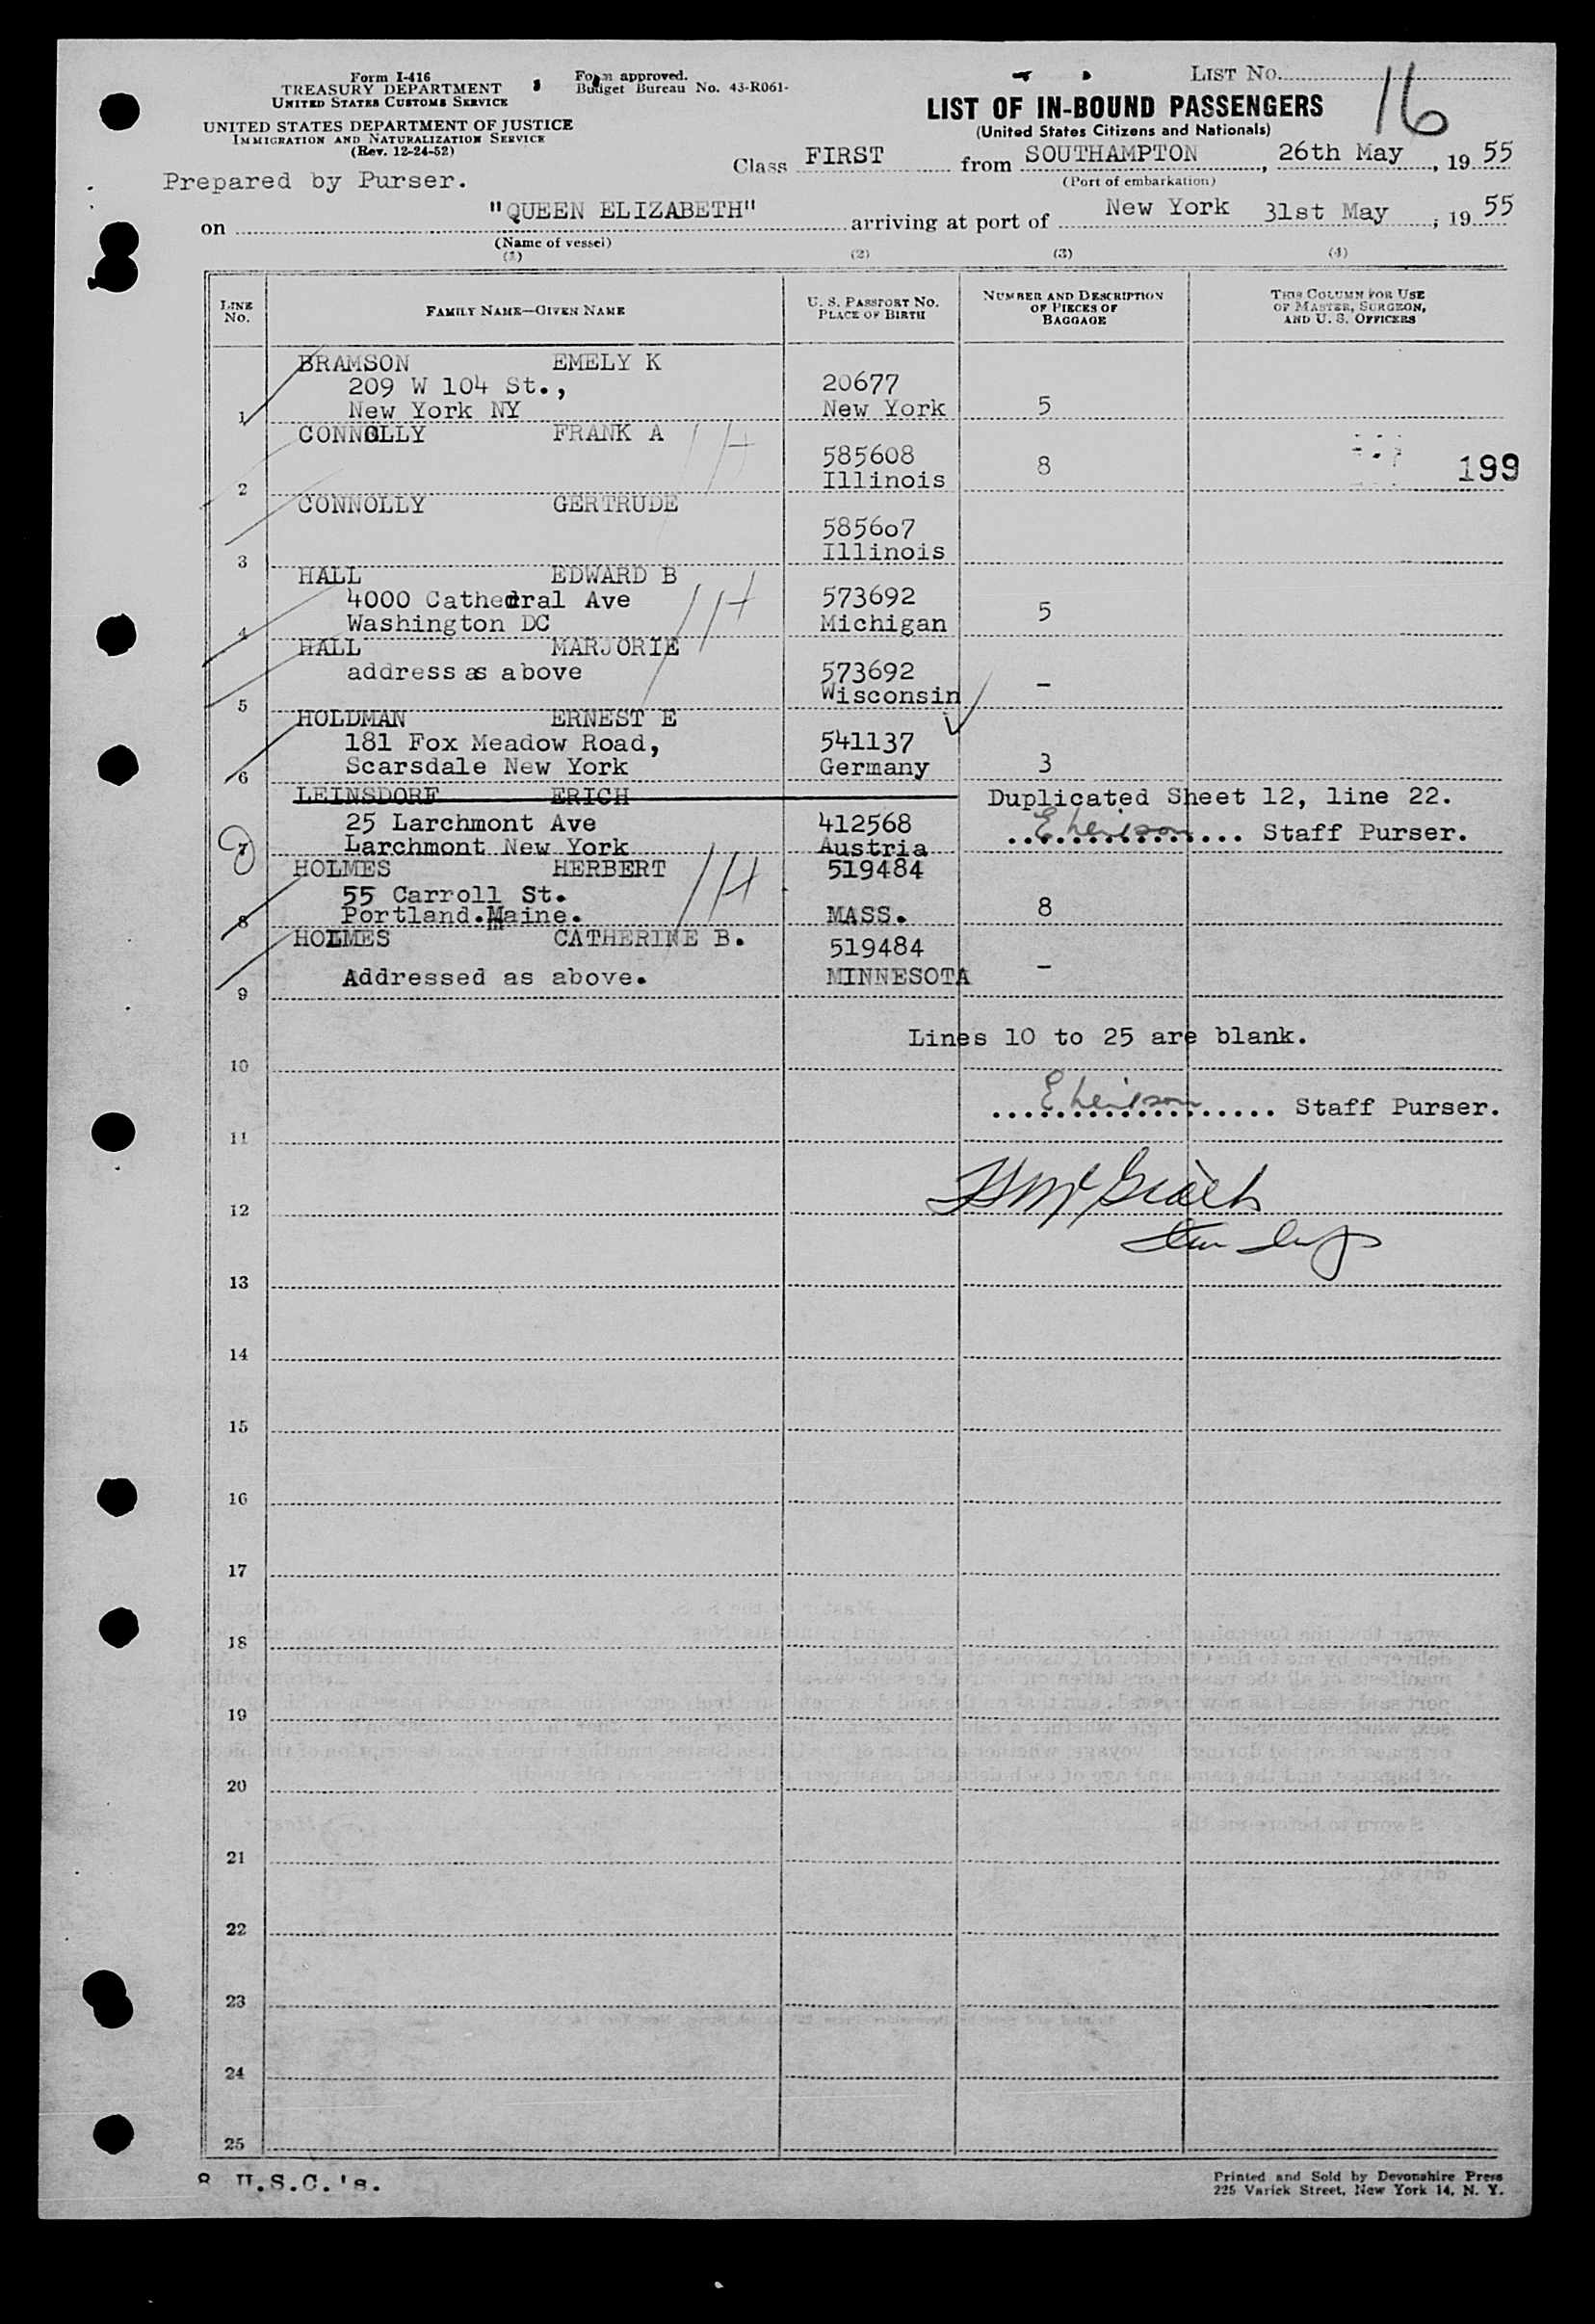 Form I-416
TREASURY DEPARTMENT
UNITED STATES CUSTOMS SERVICE
UNITED STATES DEPARTMENT OF JUSTICE
IMMIGRATION AND NATURALIZATION SERVICE
(Rev. 12-24-52)
Form approved.
Budget Bureau No. 43-R061-
LIST NO. 16
LIST OF IN-BOUND PASSENGERS
(United States Citizens and Nationals)
Prepared by Purser.
Class FIRST from SOUTHAMPTON, 26th May, 19 55
(Port of embarkation)
on "QUEEN ELIZABETH" arriving at port of New York 31st May, 19 55
(Name of vessel)
(1) (2) (3) (4)
LINE NO. FAMILY NAME—GIVEN NAME U. S. PASSPORT NO. PLACE OF BIRTH NUMBER AND DESCRIPTION OF PIECES OF BAGGAGE THIS COLUMN FOR USE OF MASTER, SURGEON, AND U. S. OFFICERS
BRAMSON EMELY K
209 W 104 St., 20677
1 New York NY New York 5
CONNOLLY FRANK A
585608 8 199
2 Illinois
CONNOLLY GERTRUDE
585607
3 Illinois
HALL EDWARD B
4000 Cathedral Ave 573692 5
4 Washington DC Michigan
HALL MARJORIE
address as above 573692 -
5 Wisconsin
HOLDMAN ERNEST E
181 Fox Meadow Road, 541137
6 Scarsdale New York Germany 3
LEINSDORF ERICH Duplicated Sheet 12, line 22.
25 Larchmont Ave 412568 Staff Purser.
7 Larchmont New York Austria
HOLMES HERBERT 519484
55 Carroll St.
8 Portland.Maine. MASS. 8
HOLMES CATHERINE B. 519484
Addressed as above. MINNESOTA -
9
Lines 10 to 25 are blank.
10
Staff Purser.
11
12
13
14
15
16
17
18
19
20
21
22
23
24
25
8 U.S.C.'s.
Printed and Sold by Devonshire Press
225 Varick Street, New York 14, N. Y.